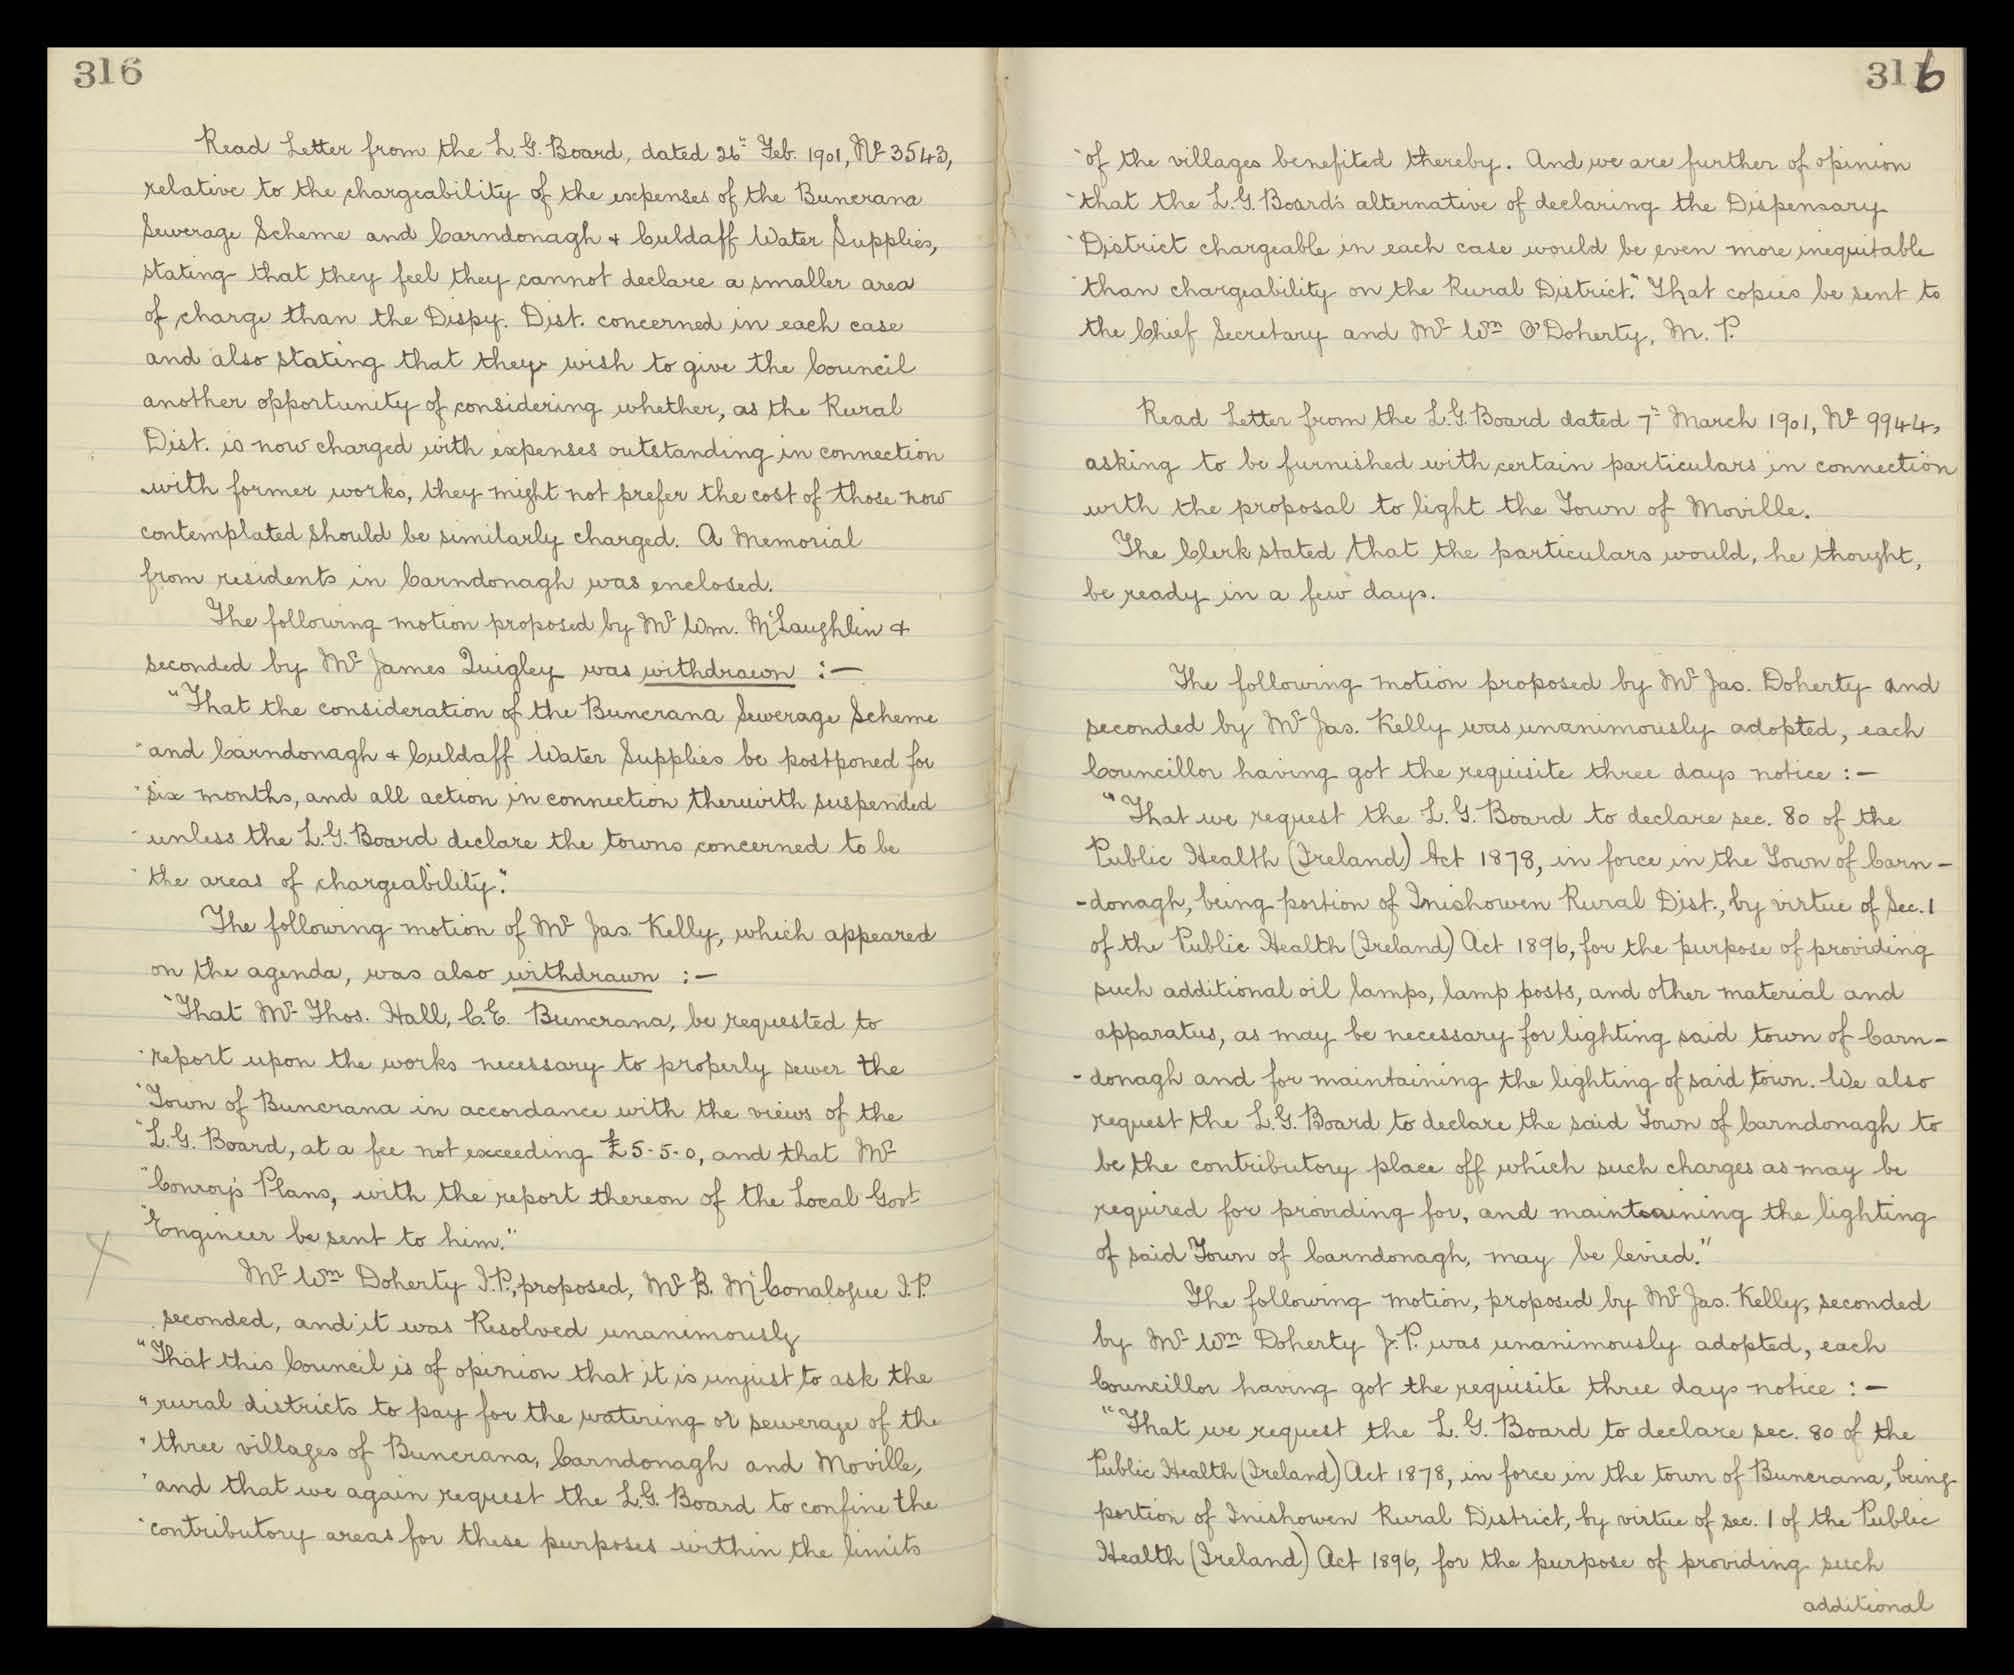 316
Read Letter from the L. G. Board, dated 26" Feb. 1901, No 3543,
relative to the chargeability of the expenses of the Buncrana
Sewerage Scheme and Carndonagh & Culdaff Water Supplies,
stating that they feel they cannot declare a smaller area
of charge than the Dispy. Dist. concerned in each case
and also stating that they wish to give the Council
another opportunity of considering whether, as the Rural
Dist. is now charged with expenses outstanding in connection
with former works, they might not prefer the cost of those now
contemplated should be similarly charged. A Memorial
from residents in Carndonagh was enclosed.
The following motion proposed by Mr Wm. McLaughlin &
seconded by Mr James Quigley was withdrawn :—
"That the consideration of the Buncrana Sewerage Scheme
"and Carndonagh & Culdaff Water Supplies be postponed for
"six months, and all action in connection therewith suspended
"unless the L.G. Board declare the towns concerned to be
"the areas of chargeability."
The following motion of Mr Jas. Kelly, which appeared
on the agenda, was also withdrawn :—
"That Mr Thos. Hall, C.E. Buncrana, be requested to
"report upon the works necessary to properly sewer the
"Town of Buncrana in accordance with the views of the
"L.G. Board, at a fee not exceeding £5-5-0, and that Mr
"Conroy's Plans, with the report thereon of the Local Govt
"Engineer be sent to him."
Mr Wm Doherty J.P., proposed, Mr B. McConalogue J.P.
seconded, and it was Resolved unanimously
"That this Council is of opinion that it is unjust to ask the
"rural districts to pay for the watering or sewerage of the
"three villages of Buncrana, Carndonagh and Moville,
"and that we again request the L.G. Board to confine the
"contributory areas for these purposes within the limits
316
"of the villages benefited thereby. And we are further of opinion
"that the L.G. Board's alternative of declaring the Dispensary
"District chargeable in each case would be even more inequitable
"than chargeability on the Rural District." That copies be sent to
the Chief Secretary and Mr Wm O'Doherty, M. P.
Read Letter from the L.G. Board dated 7" March 1901, No 9944,
asking to be furnished with certain particulars in connection
with the proposal to light the Town of Moville.
The Clerk stated that the particulars would, he thought,
be ready in a few days.
The following motion proposed by Mr Jas. Doherty and
seconded by Mr Jas. Kelly was unanimously adopted, each
Councillor having got the requisite three days notice :—
"That we request the L. G. Board to declare sec. 80 of the
Public Health (Ireland) Act 1878, in force in the Town of Carn-
-donagh, being portion of Inishowen Rural Dist., by virtue of Sec. 1
of the Public Health (Ireland) Act 1896, for the purpose of providing
such additional oil lamps, lamp posts, and other material and
apparatus, as may be necessary for lighting said town of Carn-
-donagh and for maintaining the lighting of said town. We also
request the L.G. Board to declare the said Town of Carndonagh to
be the contributory place off which such charges as may be
required for providing for, and maintaining the lighting
of said Town of Carndonagh, may be levied."
The following motion, proposed by Mr Jas. Kelly, seconded
by Mr Wm Doherty J.P. was unanimously adopted, each
Councillor having got the requisite three days notice :—
"That we request the L. G. Board to declare sec. 80 of the
Public Health (Ireland) Act 1878, in force in the town of Buncrana, being
portion of Inishowen Rural District, by virtue of sec. 1 of the Public
Health (Ireland) Act 1896, for the purpose of providing such
additional